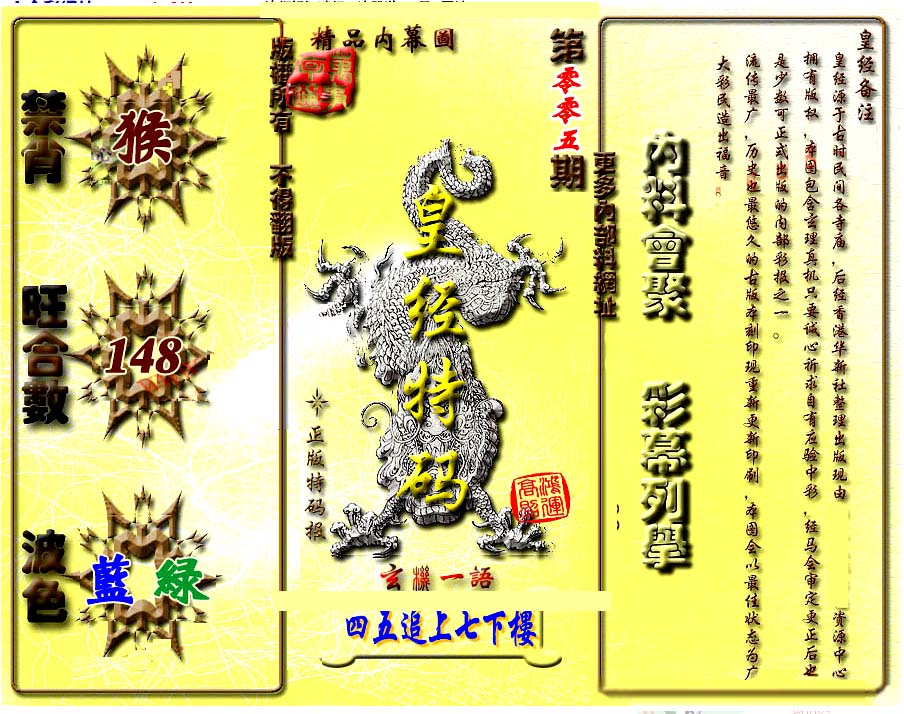 精品内幕圖
第零零五期
版權所有 不得翻版
更多內部料網址
禁肖
猴
旺合數
148
波色
藍 綠
皇经特码
正版特码报
鴻運高照
玄機一語
四五追上七下樓
内料會聚 彩幕列舉
皇经备注
皇经源于古时民间各寺庙,后经香港华新社整理出版现由 资源中心
拥有版权,本图包含玄理真机只要诚心祈求自有应验中彩,经马会审定更正后也
是少数可正式出版的内部彩报之一。
流传最广,历史也最悠久的古版本刻印现重新更新印刷,本图会以最佳状态为广
大彩民造出福音。